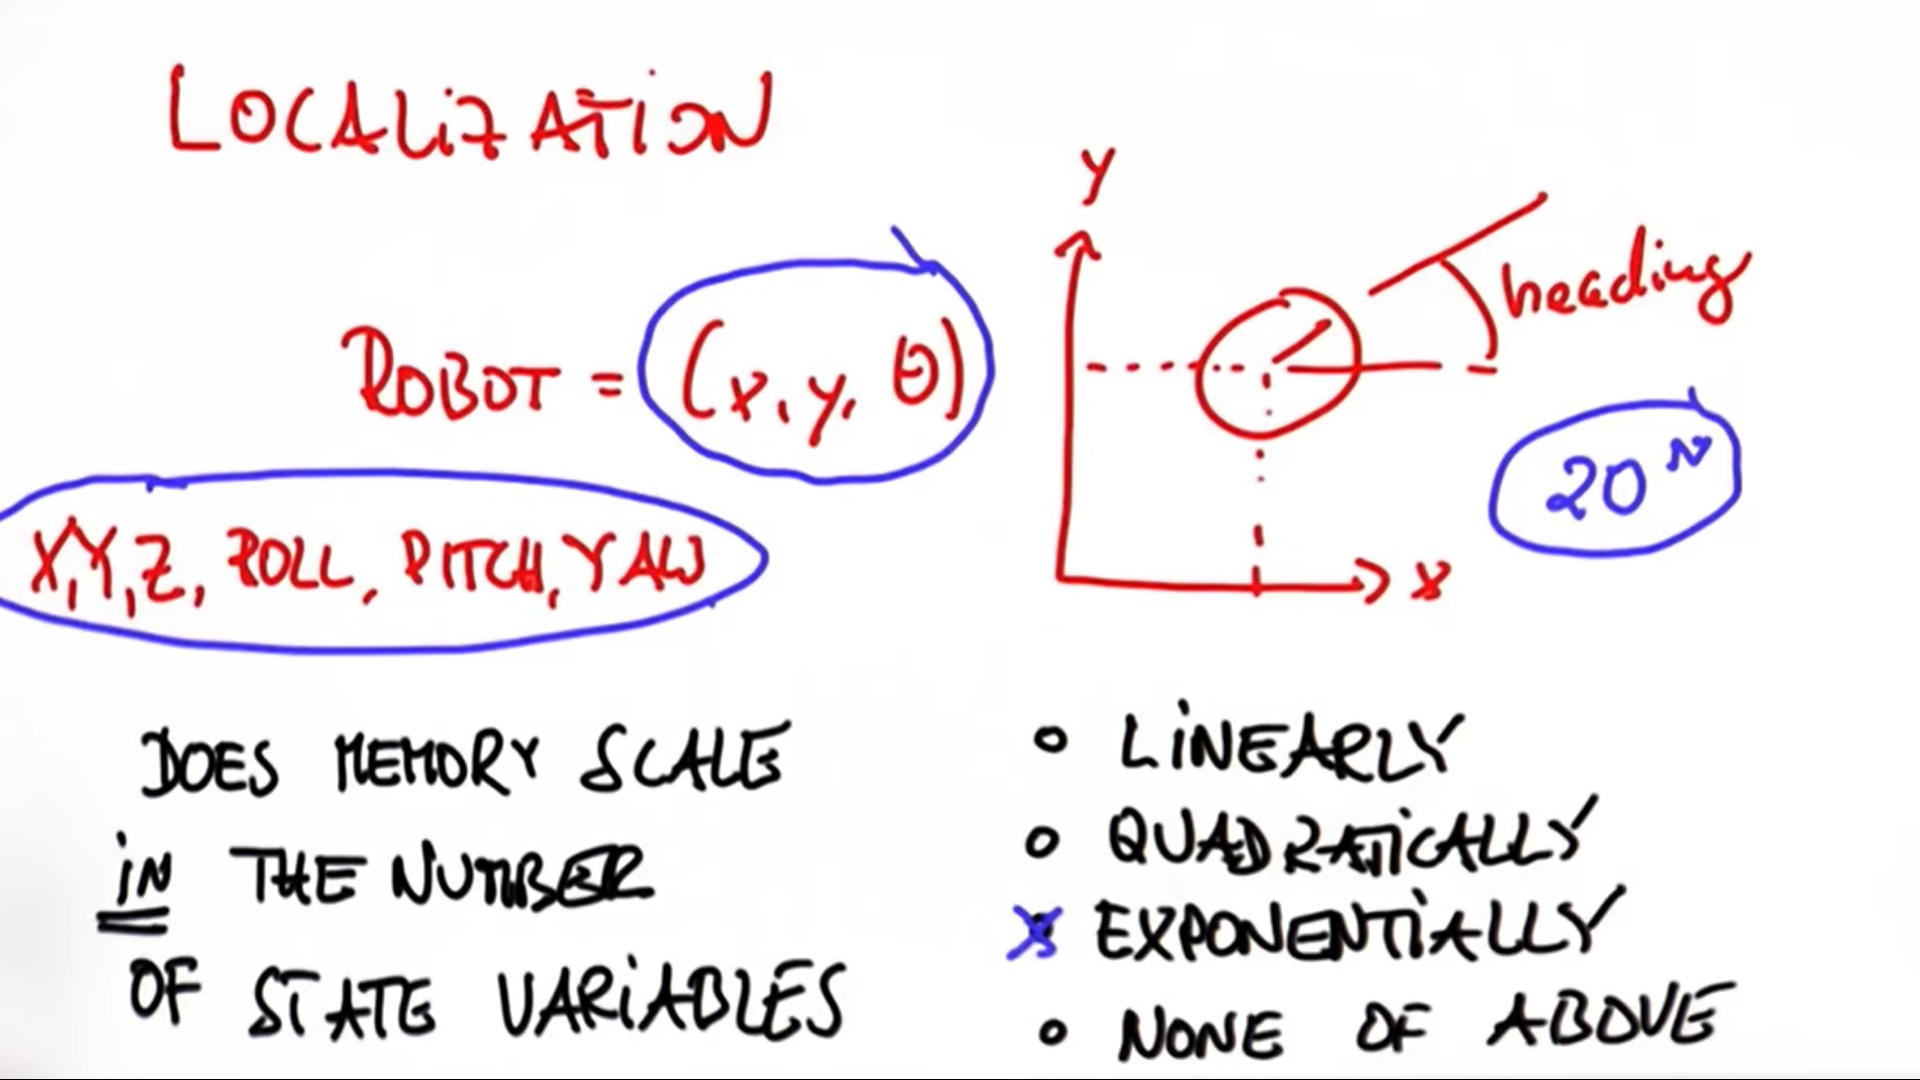 LOCALiZATiON
Y
heading
ROBOT = (x, y, θ)
20ᴺ
X,Y,Z, ROLL, PITCH, YAW
X
DOES MEMORY SCALE
iN THE NUMBER
OF STATE VARiABLES
○ LiNEARLY
○ QUADRATiCALLY
X EXPONENTiALLY
○ NONE OF ABOVE